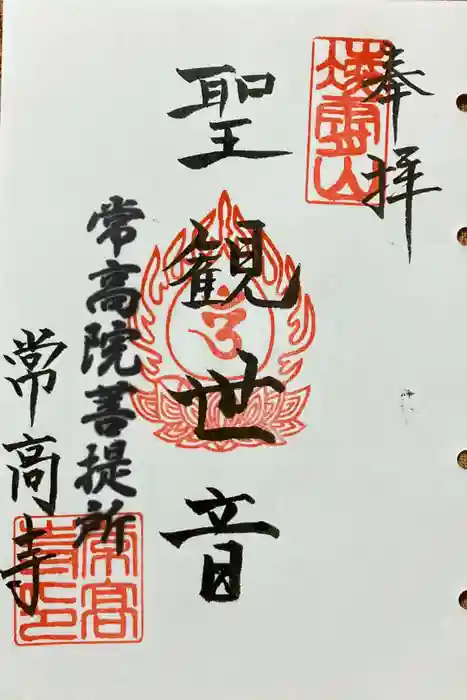 奉拝
凌霄山
聖観世音
常高院菩提所
常高寺
常高
寺印